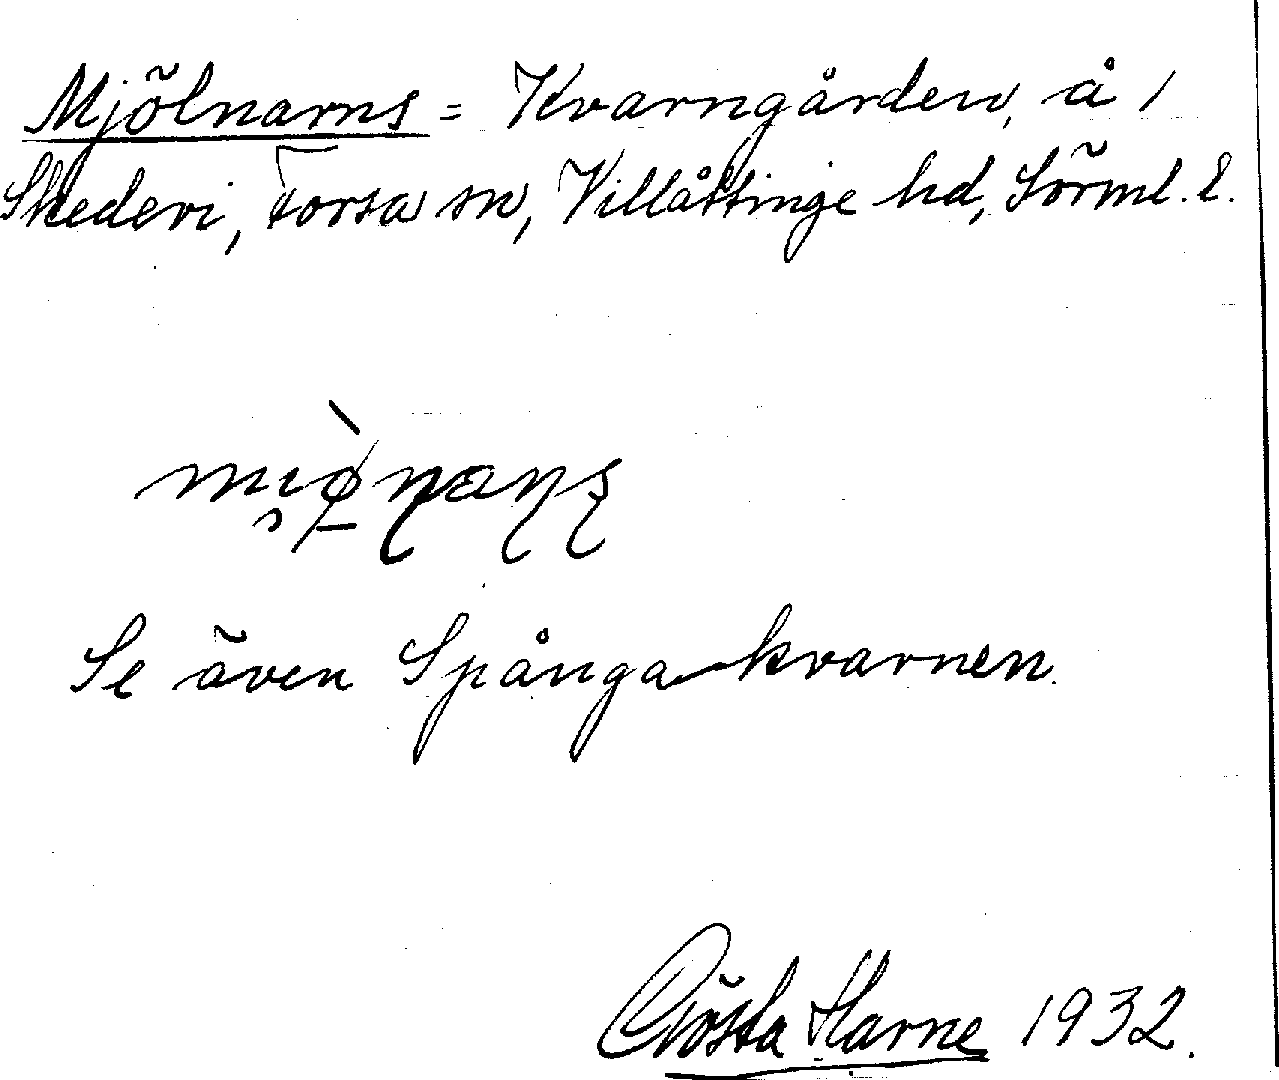 Mjölnarns = Kvarngården, å 1
Skedevi, Forsa sn, Villåttinge hd, Sörml. l.
Se även Spångakvarnen.
Gösta Harne 1932.